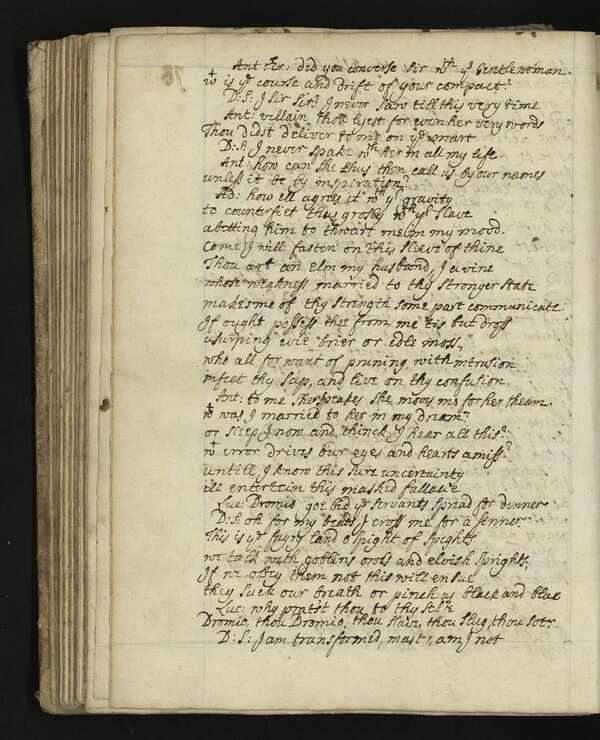 Ant Er: did you converse Sir wth ye Gentlewoman.
wt is ye course and drift of your compact?
D: S: I Sir Sir? I never saw till this very time
Ant: villain thou lyest for even her very words
Thou didst deliver to me on ye mart
D: S: I never spake wth her in all my life.
Ant: how can she thus then call us by our names
unless it be by inspiration?
Ad: how ill agrees it wth yr gravity
to counterfiet thus grosly wth yr slave
abetting him to thwart me in my mood.
Come I will fasten on this sleeve of thine
Thou art an elm my husband, I a vine
whose weakness married to thy stronger state
makes me of thy strength some part communicate.
If ought possess thee from me tis but dross
usurping ivie brier or idle moss,
who all for want of pruning, with intrusion
infect thy sap, and live on thy confusion.
Ant: to me she speakes she moves me for her theam.
wt was I married to her in my dream?
or sleep I now and thinck I hear all this?
wt error drives our eyes and hearts amiss?
untill I know this sure uncertainty
ile entertein this masked fallacie
Luc: Dromio goe bid ye servants spread for dinner
D: S: oh for my beads I cross me for a sinner.
This is ye fayry land o spight of spights
we talk with goblins owls and elvish sprights,
If we obey them not this will ensue
they suck our breath or pinch us black and blue
Luc: why pratst thou to thy selfe
Dromio, thou Dromio, thou slave, thou slug, thou sot?
D: S: I am transformed, mastr, am I not